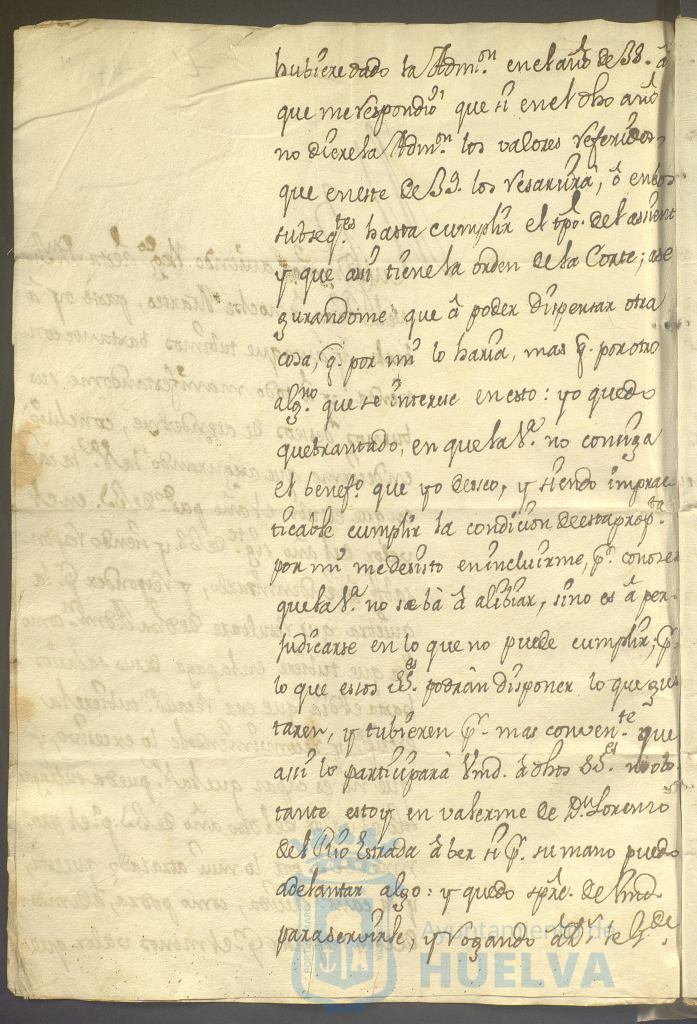 hubiere dado la Adm.on en el año de 38. â
que me respondió que si en el dho año
no diere la Adm.on los valores referidos,
que en este de 39. los resarcirá, ô en los
subseq.tes hasta cumplir el tpo. del asient
y que assi tiene la orden de la Corte; ase
gurandome que â poder dispensar otra
cosa, q. por mi lo haria, mas q. por otro
alg.no que se interese en esto: yo quedo
quebrantado, en que la V.a no consiga
el benef.o que yo deseo, y siendo imprac
ticable cumplir la condicion de esta prop.ta
por mi me desisto en incluirme, p.r conocer
que la V.a no se bà â alibiar, sino es â per
judicarse en lo que no puede cumplir; p.r
lo que essos SS.es podràn disponer lo que gus
taren, y tubieren p.r mas conven.te que
assi lo participarà Vmd. â dhos SS.es no obs
tante estoy en valerme de D.n Lorenzo
del Rio Estrada â ber si p.r su mano puedo
adelantar algo: y quedo spre. de Vmd.
para servirle, y rogando â D.s le g.de
Ayuntamiento de
HUELVA